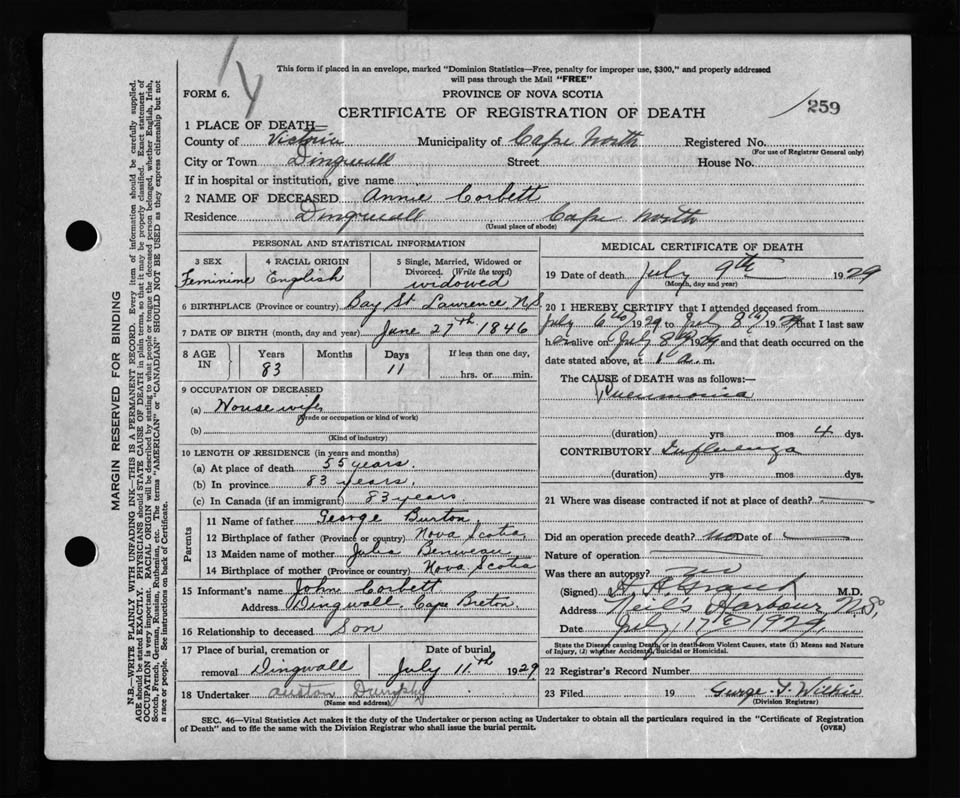 This form if placed in an envelope, marked "Dominion Statistics—Free, penalty for improper use, $300," and properly addressed
will pass through the Mail "FREE"
FORM 6.
PROVINCE OF NOVA SCOTIA
CERTIFICATE OF REGISTRATION OF DEATH
259
1 PLACE OF DEATH
County of Victoria Municipality of Cape North Registered No.
(For use of Registrar General only)
City or Town Dingwall Street House No.
If in hospital or institution, give name
2 NAME OF DECEASED Annie Corbett
Residence Dingwall Cape North
(Usual place of abode)
PERSONAL AND STATISTICAL INFORMATION
3 SEX 4 RACIAL ORIGIN 5 Single, Married, Widowed or
Divorced. (Write the word)
Feminine English widowed
6 BIRTHPLACE (Province or country) Bay St Lawrence N.S.
7 DATE OF BIRTH (month, day and year) June 27th 1846
8 AGE IN Years Months Days If less than one day,
83 11 hrs. or min.
9 OCCUPATION OF DECEASED
(a) House wife
(Trade or occupation or kind of work)
(b)
(Kind of industry)
10 LENGTH OF RESIDENCE (in years and months)
(a) At place of death 55 years.
(b) In province 83 years.
(c) In Canada (if an immigrant) 83 years.
Parents
11 Name of father George Burton
12 Birthplace of father (Province or country) Nova Scotia
13 Maiden name of mother Julia
14 Birthplace of mother (Province or country) Nova Scotia
15 Informant's name John Corbett
Address Dingwall, Cape Breton.
16 Relationship to deceased Son
17 Place of burial, cremation or Date of burial
removal Dingwall July 11th 1929
18 Undertaker
(Name and address)
MEDICAL CERTIFICATE OF DEATH
19 Date of death July 9th 1929
(Month, day and year)
20 I HEREBY CERTIFY that I attended deceased from
July 6th 1929 to July 8th 1929 that I last saw
her alive on July 8th 1929 and that death occurred on the
date stated above, at 1 a. m.
The CAUSE of DEATH was as follows:—
Pneumonia
(duration) yrs mos 4 dys.
CONTRIBUTORY Influenza
(duration) yrs. mos. dys.
21 Where was disease contracted if not at place of death?
Did an operation precede death? no Date of
Nature of operation
Was there an autopsy? no
(Signed) Grant M.D.
Address Neil's Harbour N.S.
Date July 17th 1929
State the Disease causing Death, or in death from Violent Causes, state (1) Means and Nature
of Injury, (2) whether Accidental, Suicidal or Homicidal.
22 Registrar's Record Number
23 Filed 19 George Wilkie
(Division Registrar)
SEC. 46—Vital Statistics Act makes it the duty of the Undertaker or person acting as Undertaker to obtain all the particulars required in the "Certificate of Registration
of Death" and to file the same with the Division Registrar who shall issue the burial permit. (OVER)
MARGIN RESERVED FOR BINDING
N.B.—WRITE PLAINLY WITH UNFADING INK—THIS IS A PERMANENT RECORD. Every item of information should be carefully supplied.
AGE should be stated EXACTLY. PHYSICIANS should STATE CAUSE OF DEATH in plain terms, so that it may be properly classified. Exact statement of
OCCUPATION is very important. RACIAL ORIGIN will be described by stating to what people or tongue the deceased person belonged, whether English, Irish,
Scotch, French, German, Russian, Ruthenian, etc. The terms "AMERICAN" or "CANADIAN" SHOULD NOT BE USED as they express citizenship but not
a race or people. See instructions on back of Certificate.